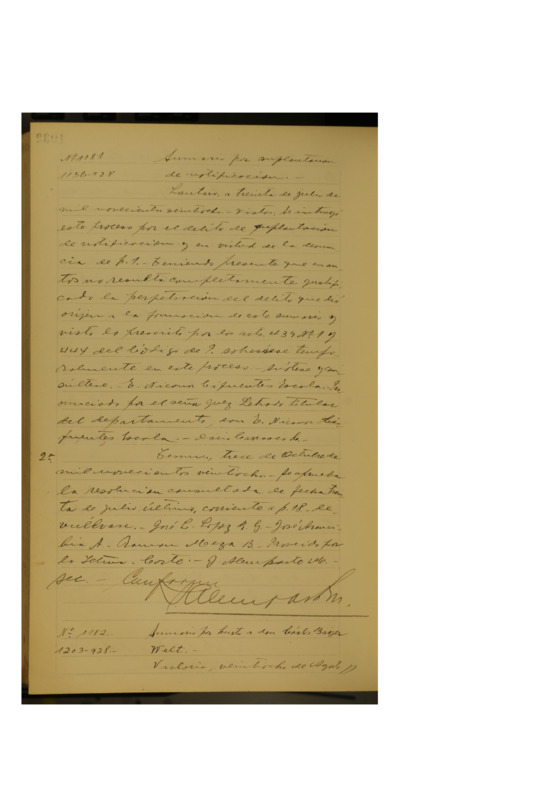 Nº 1181 Sumario por suplantacion
1136-928 de notificacion.-
Lautaro, a treinta de julio de
mil novecientos veintiocho.- Vistos: Se instruyó
este proceso por el delito de suplantacion
de notificacion y en virtud de la denun-
cia de f. 1.- Teniendo presente que de au-
tos no resulta completamente justifi-
cada la perpetracion del delito que dió
orijen a la formacion de este sumario y
visto lo prescrito por los arts. 434 Nº 1 y
444 del Código de P. sobreséese tempo-
ralmente en este proceso.- Anótese y con-
súltese.- E. Nicanor Cifuentes Escola.- Pro-
nunciado por el señor Juez Letrado titular
del departamento, don E. Nicanor Ci-
fuentes Escola.-
2ª Temuco, trece de Octubre de
mil novecientos veintiocho.- Se aprueba
la resolucion consultada de fecha trein-
ta de julio último, corriente a f. 18. De-
vuélvase.- José L. Lopez
A.- Ramon Meza B.- Proveido por
la Iltma. Corte.-
sec.- Conforme
Nº 1182 Sumario por hurto a don Carlos
1203-928- Welt.-
Victoria, veintiocho de Agosto